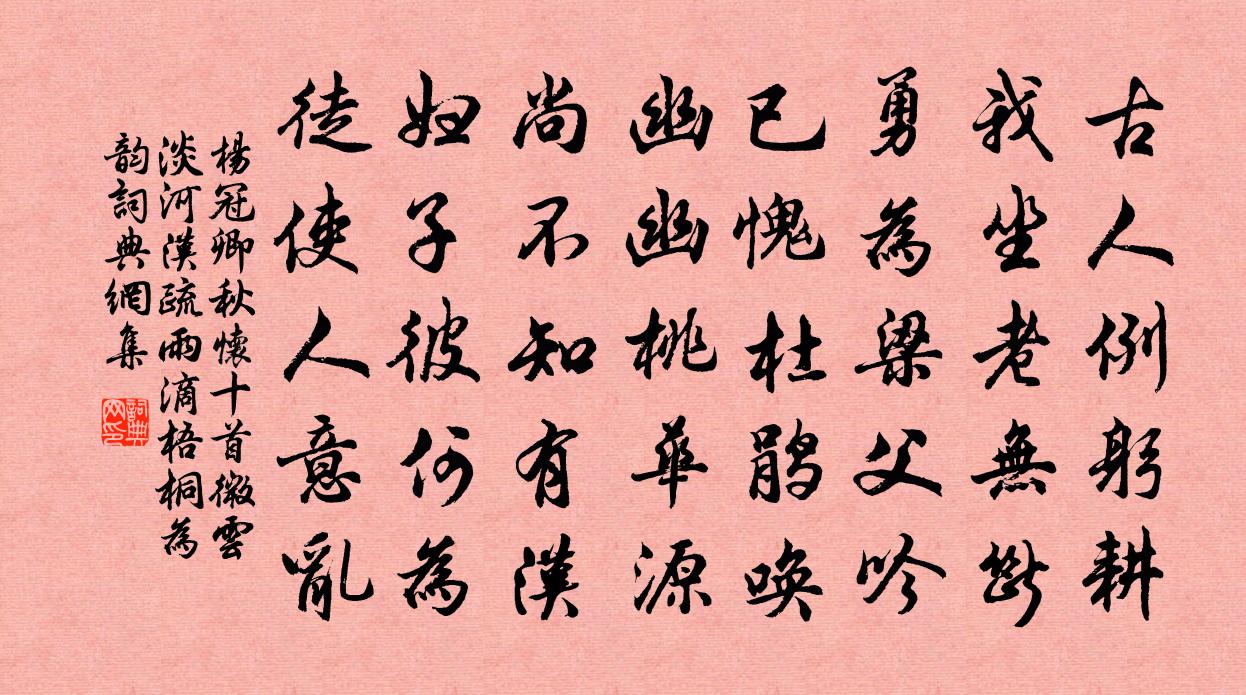 古人例躬耕
我坐老無斷
勇為梁父吟
已愧杜鵑喚
幽幽桃華源
尚不知有漢
婦子彼何為
徒使人意亂
楊冠卿秋懷十首微雲
淡河漢疏雨滴梧桐為
韵詞典網集
詞典網印